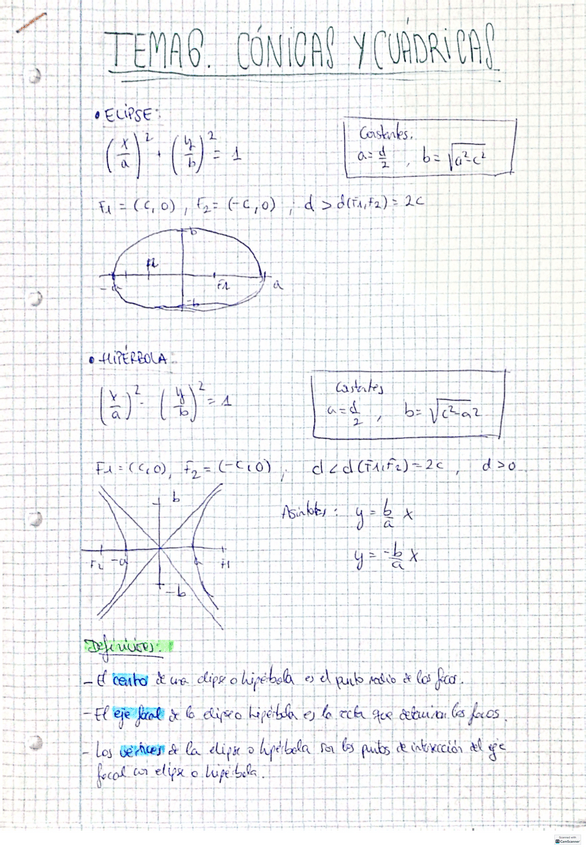 TEMA 6. CÓNICAS Y CUÁDRICAS
• ELIPSE:
(x/a)² + (y/b)² = 1
Constantes.
a = d/2 , b = √(a²-c²)
F1 = (c,0) , F2 = (-c,0) ; d > d(F1,F2) = 2c
b
F2
-a
F1
a
-b
• HIPÉRBOLA:
(x/a)² - (y/b)² = 1
Costantes
a = d/2 , b = √(c²-a²)
F1 = (c,0), F2 = (-c,0) ; d < d(F1,F2) = 2c , d > 0
b
F2
-a
a
F1
-b
Asíntotas: y = b/a x
y = -b/a x
Definiciones:
- El centro de una elipse o hipérbola es el punto medio de los focos.
- El eje focal de la elipse o hipérbola es la recta que determinan los focos.
- Los vértices de la elipse o hipérbola son los puntos de intersección del eje
focal con elipse o hipérbola.
CamScanner